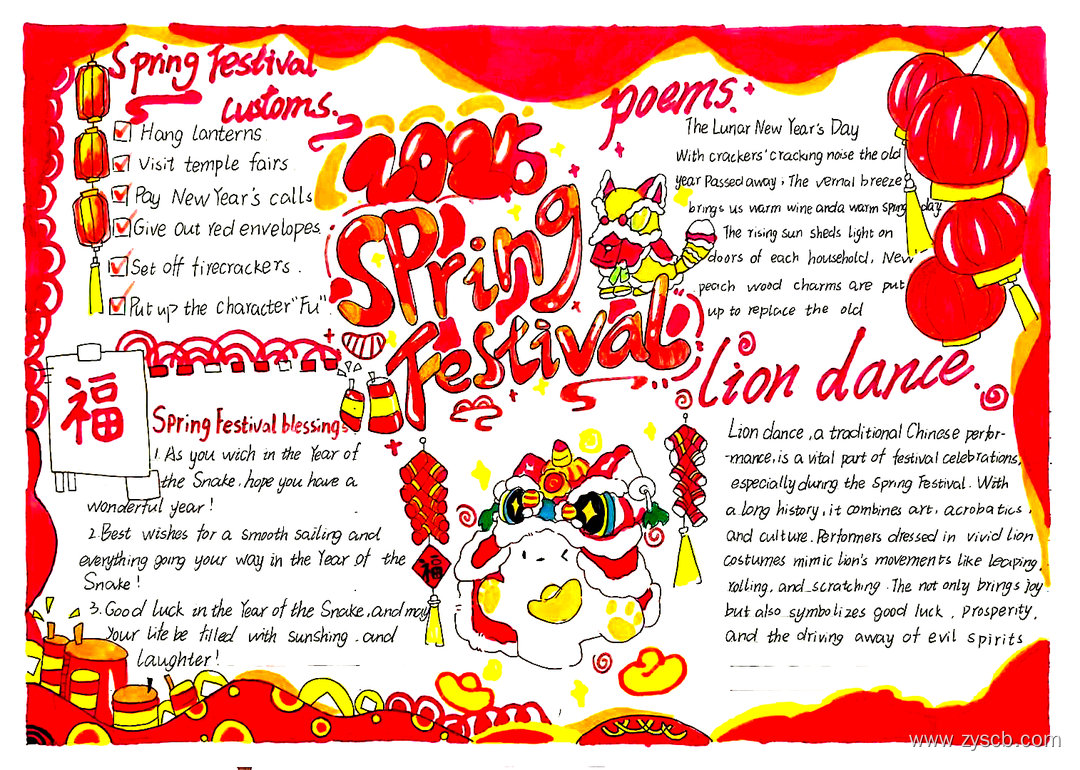 Spring Festival
customs.
Hang lanterns
Visit temple fairs
Pay New Year's calls
Give out red envelopes
Set off firecrackers.
Put up the character "Fu".
2026
Spring
Festival
poems.
The Lunar New Year's Day
With crackers' cracking noise the old
year Passed away, The vernal breeze
brings us warm wine and a warm spring day
The rising sun sheds light on
doors of each household, New
peach wood charms are put
up to replace the old
福
Spring Festival blessings
1. As you wich in the Year of
the Snake. hope you have a
wonderful year!
2. Best wishes for a smooth sailing and
everything going your way in the Year of the
Snake!
3. Good luck in the Year of the Snake, and may
your life be filled with sunshing . and
laughter!
福
Lion dance.
Lion dance, a traditional Chinese perfor-
-mance, is a vital part of festival celebrations,
especially during the Spring Festival. With
a long history, it combines art, acrobatics,
and culture. Performers dressed in vivid lion
costumes mimic lion's movements like leaping,
rolling, and scratching. The not only brings joy
but also symbolizes good luck, prosperity,
and the driving away of evil spirits
www.zyscb.com